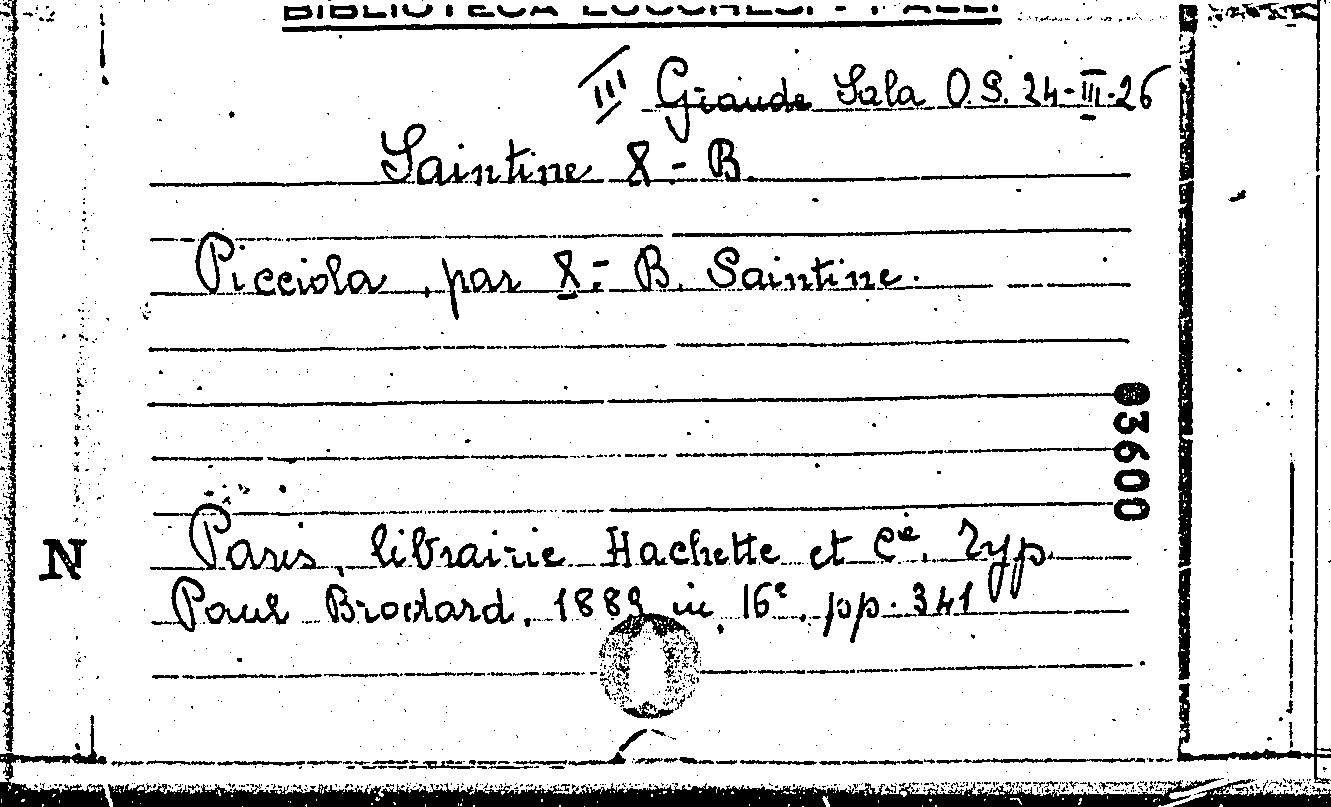 BIBLIOTECA LUCCHESI - PALLI
III Grande Sala O.S. 24-III-26
Saintine X - B.
Picciola, par X.- B. Saintine.
03600
N
Paris, librairie Hachette et Cie. Typ.
Paul Brodard, 1889 in 16°. pp. 341